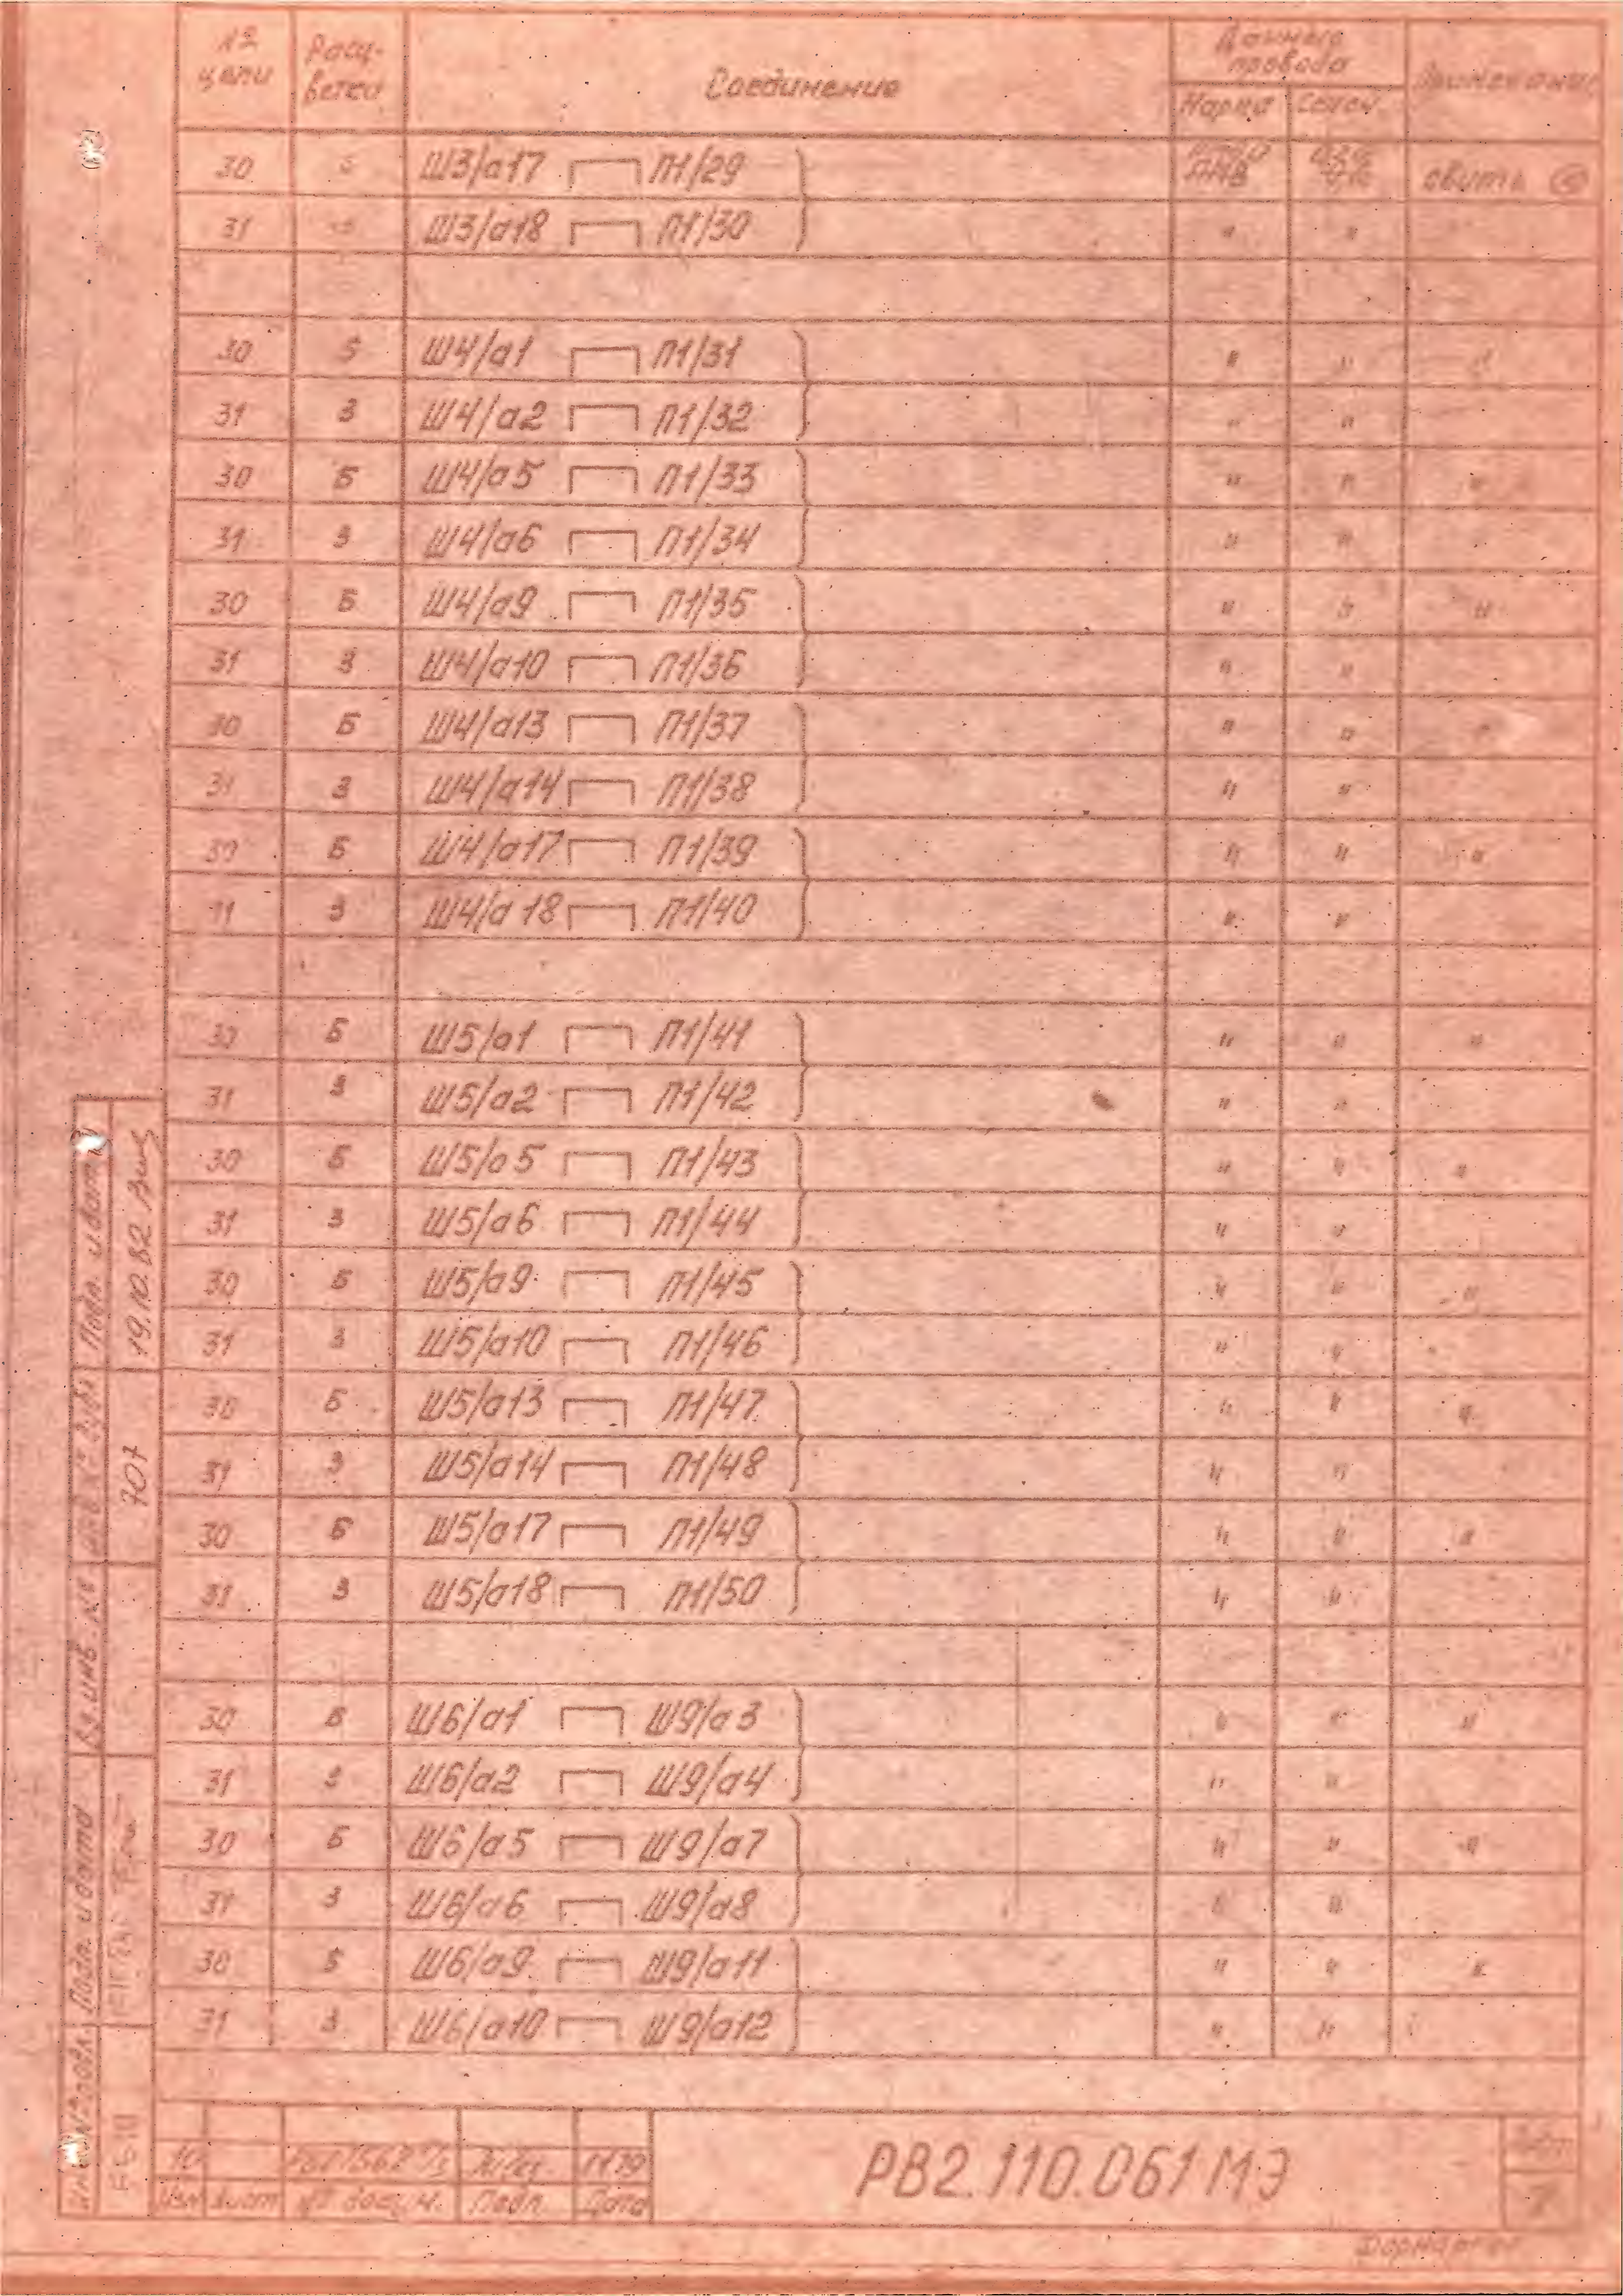 № цепи Расцветка Соединение Данные провода Примечание
Марка Сечен.
30 Ш3/а17 П1/29 свить
31 Ш3/а18 П1/30 " "
30 Б Ш4/а1 П1/31 " " "
31 З Ш4/а2 П1/32 " "
30 Б Ш4/а5 П1/33 " " "
31 З Ш4/а6 П1/34 " "
30 Б Ш4/а9 П1/35 " " "
31 З Ш4/а10 П1/36 " "
30 Б Ш4/а13 П1/37 " " "
31 З Ш4/а14 П1/38 " "
30 Б Ш4/а17 П1/39 " " "
31 З Ш4/а18 П1/40 " "
30 Б Ш5/а1 П1/41 " " "
31 З Ш5/а2 П1/42 " "
30 Б Ш5/а5 П1/43 " " "
31 З Ш5/а6 П1/44 " "
30 Б Ш5/а9 П1/45 " " "
31 З Ш5/а10 П1/46 " "
30 Б Ш5/а13 П1/47 " " "
31 З Ш5/а14 П1/48 " "
30 Б Ш5/а17 П1/49 " " "
31 З Ш5/а18 П1/50 " "
30 Б Ш6/а1 Ш9/а3 " " "
31 З Ш6/а2 Ш9/а4 " "
30 Б Ш6/а5 Ш9/а7 " " "
31 З Ш6/а6 Ш9/а8 " "
30 Б Ш6/а9 Ш9/а11 " " "
31 З Ш6/а10 Ш9/а12 " "
Подп. и дата 19.10.82
Инв. № дубл. 707
Вз. инв. №
Подп. и дата
Инв. № подл.
10
Изм Лист № докум. Подп. Дата
РВ2.110.061МЭ
Лист
7